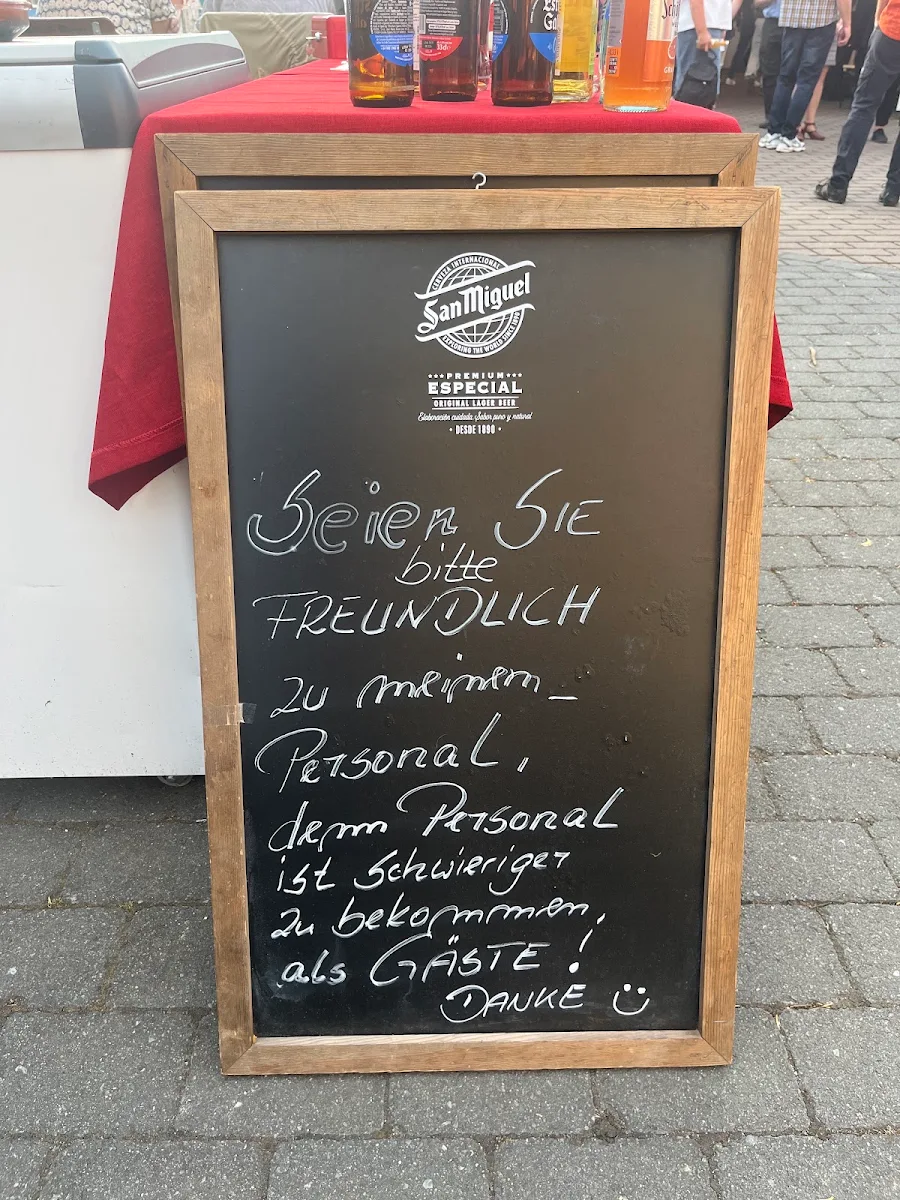 CERVEZA INTERNACIONAL
San Miguel
EXPLORING THE WORLD SINCE 1890
PREMIUM
ESPECIAL
ORIGINAL LAGER BEER
Elaboración cuidada. Sabor puro y natural
• DESDE 1890 •
Seien SIE
bitte
FREUNDLICH
zu meinem_
Personal,
denn Personal
ist schwieriger
zu bekommen,
als GÄSTE !
DANKE